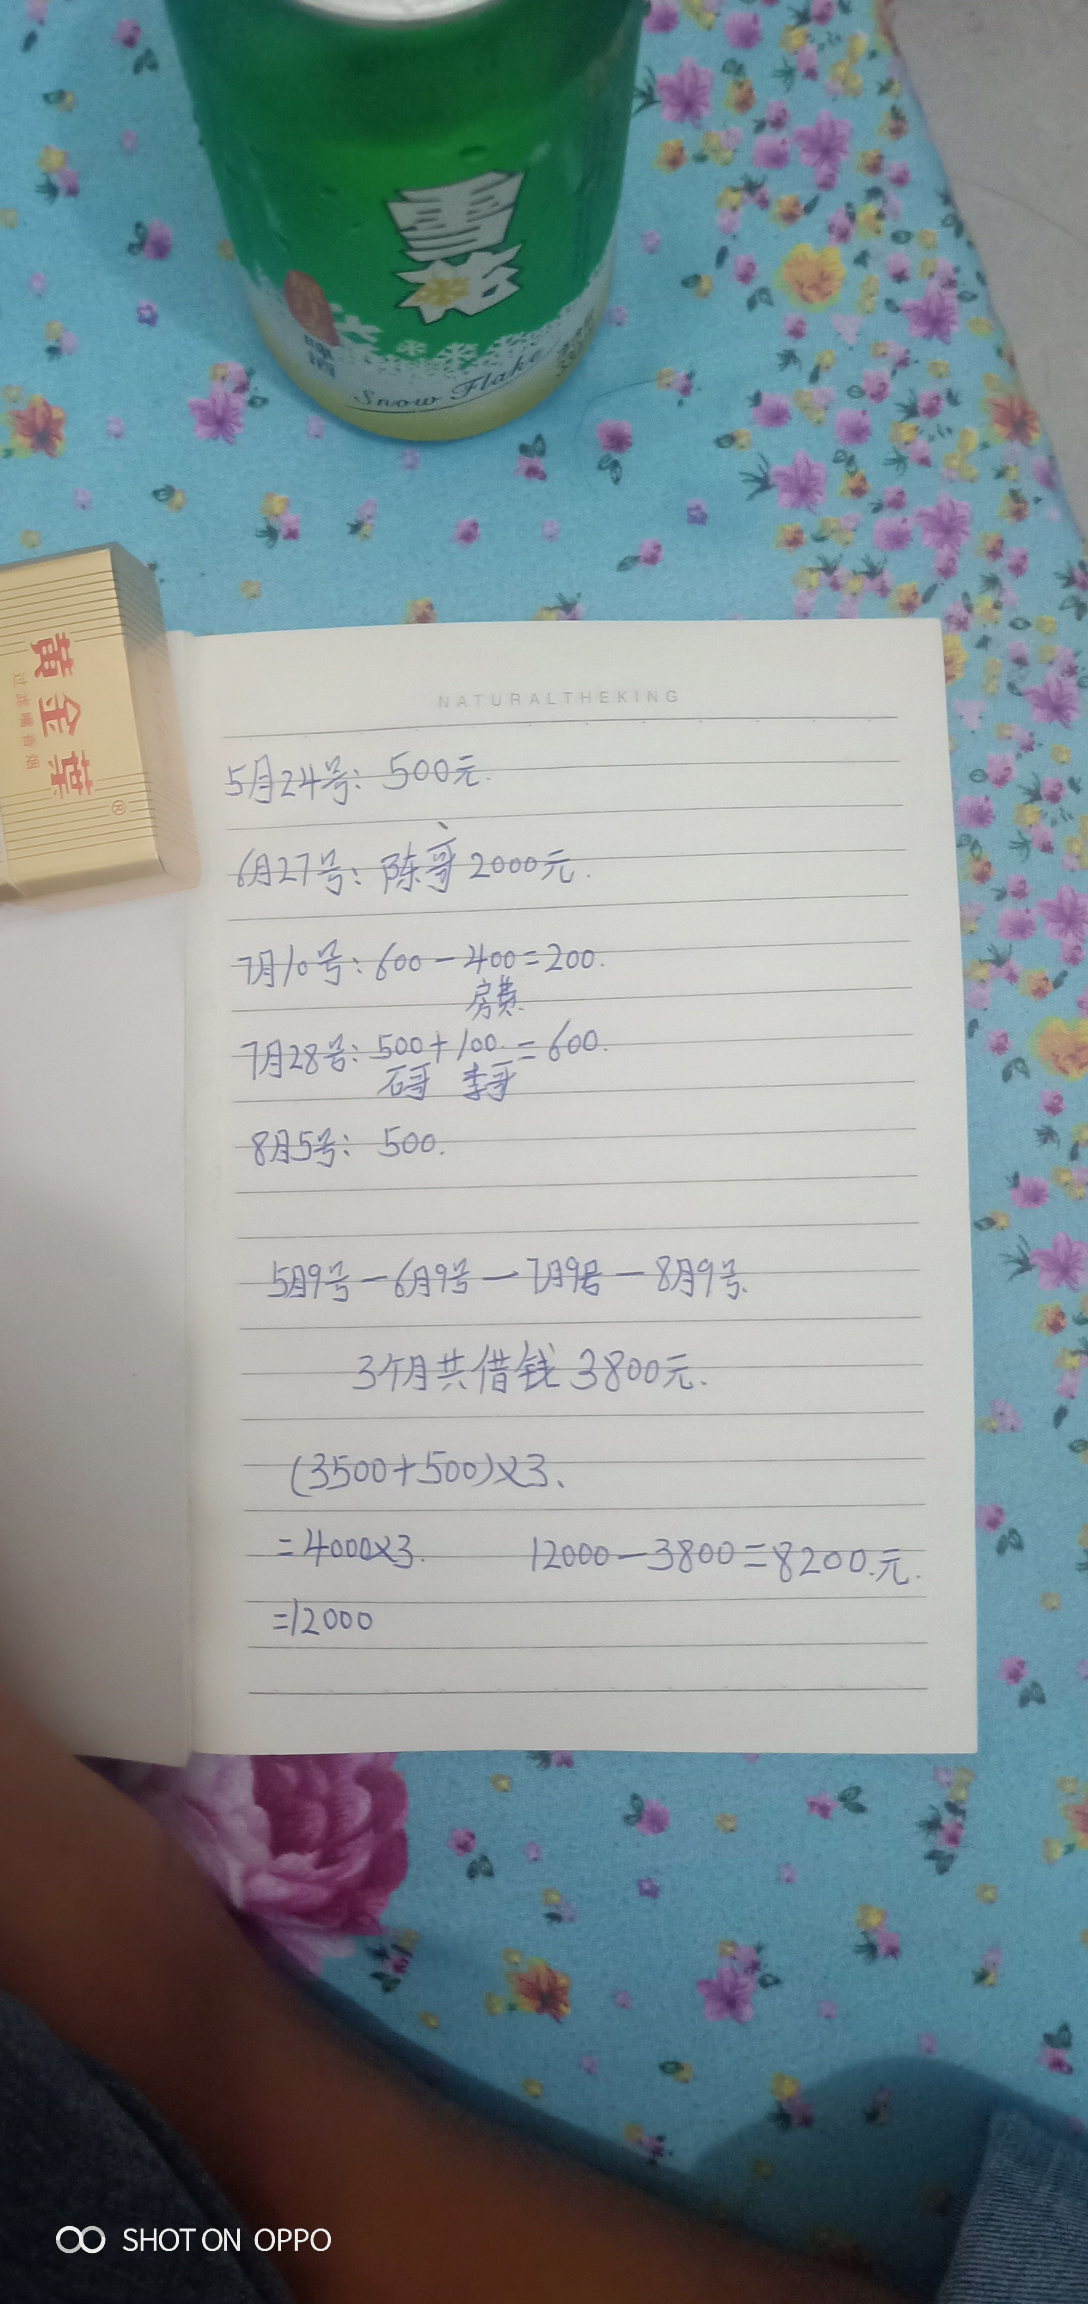 雪花
啤酒
Snow Flake
黄金葉
过滤嘴香烟
®
NATURALTHEKING
5月24号：500元.
6月27号：陈哥2000元.
7月10号：600-400=200.
房费.
7月28号：500+100.=600.
石哥 李哥
8月5号：500.
5月9号—6月9号—7月9号—8月9号.
3个月共借钱3800元.
(3500+500)×3、
=4000×3. 12000-3800=8200.元.
=12000
SHOT ON OPPO